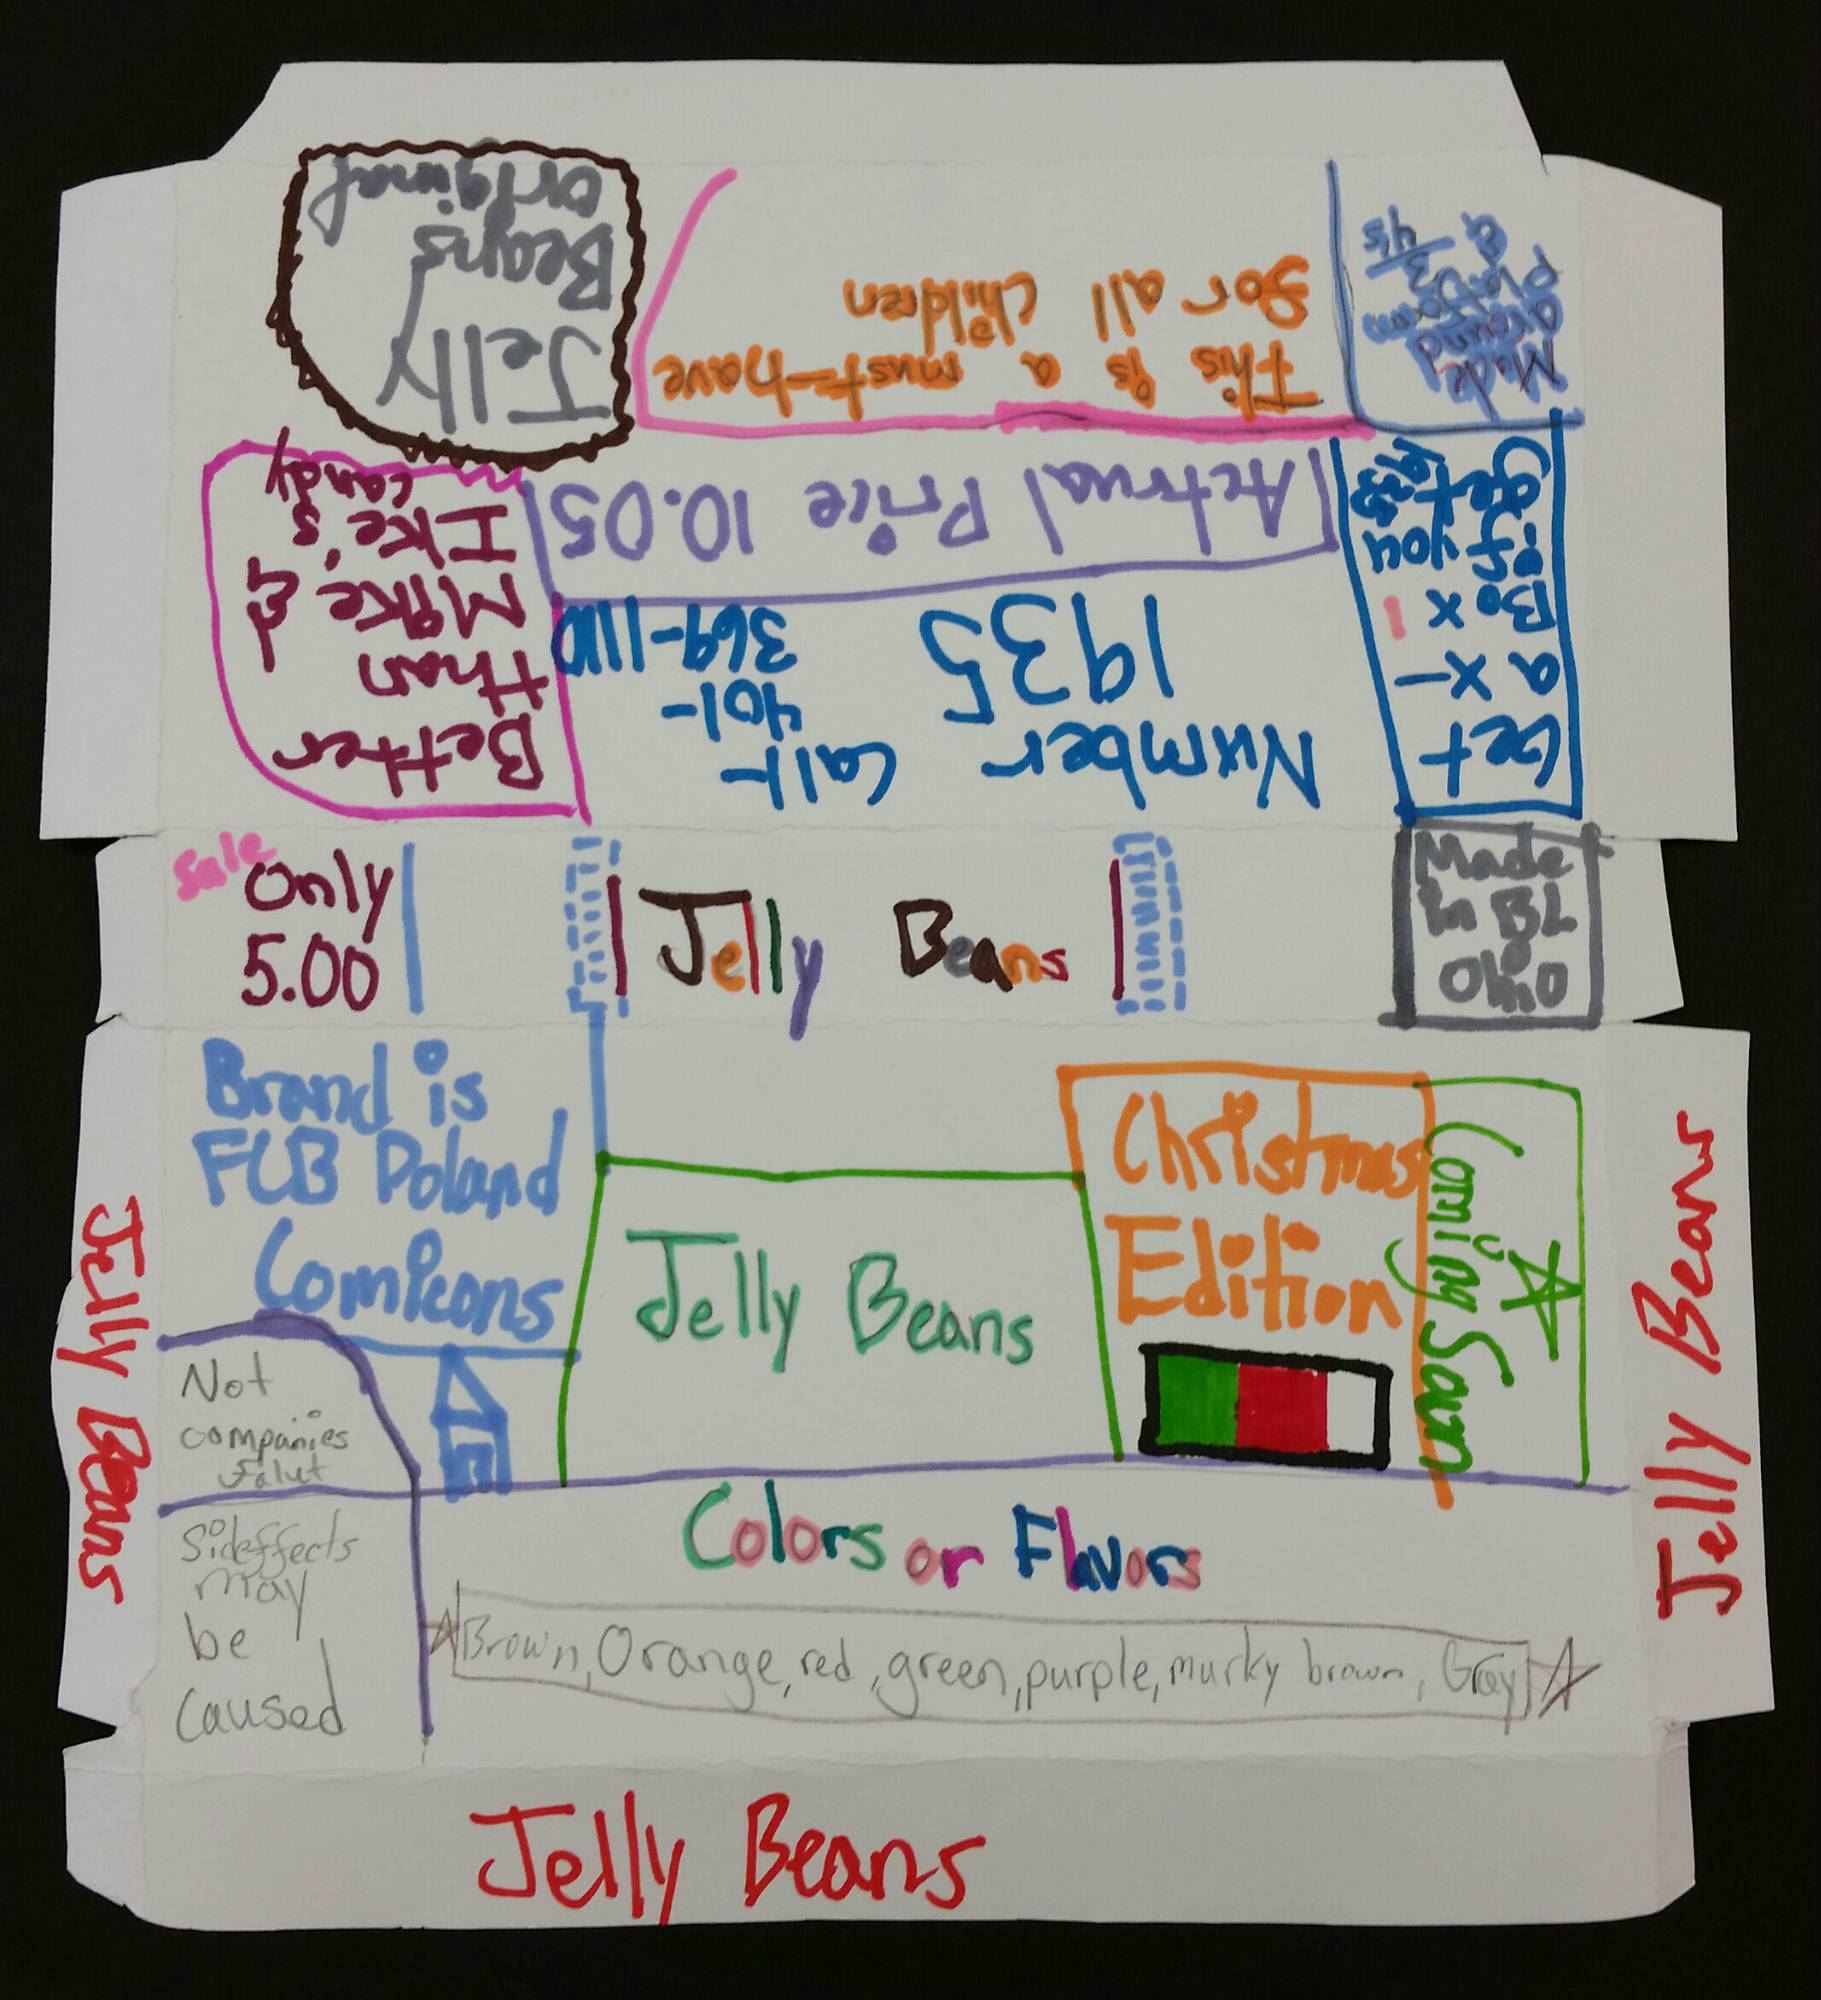 Jelly
Beans
original
This is a must-have
for all children
Made
around
platform
3
&
4s
Better
than
Mike &
Ike's
candy
Actrual Price 10.05
Number
1935
Call-
401-
369-1110
Get
a x-
Box 1
if you
get
Sale
Only
5.00
Jelly Beans
Made
in BL
Ohio
Brand is
FCB Poland
Comicons
Jelly Beans
Christmas
Edition
Coming Soon
Not
companies
falut
Sideffects
may
be
caused
Colors or Flavors
Brown, Orange, red, green, purple, murky brown, Gray
Jelly Beans
Jelly Beans
Jelly Beans